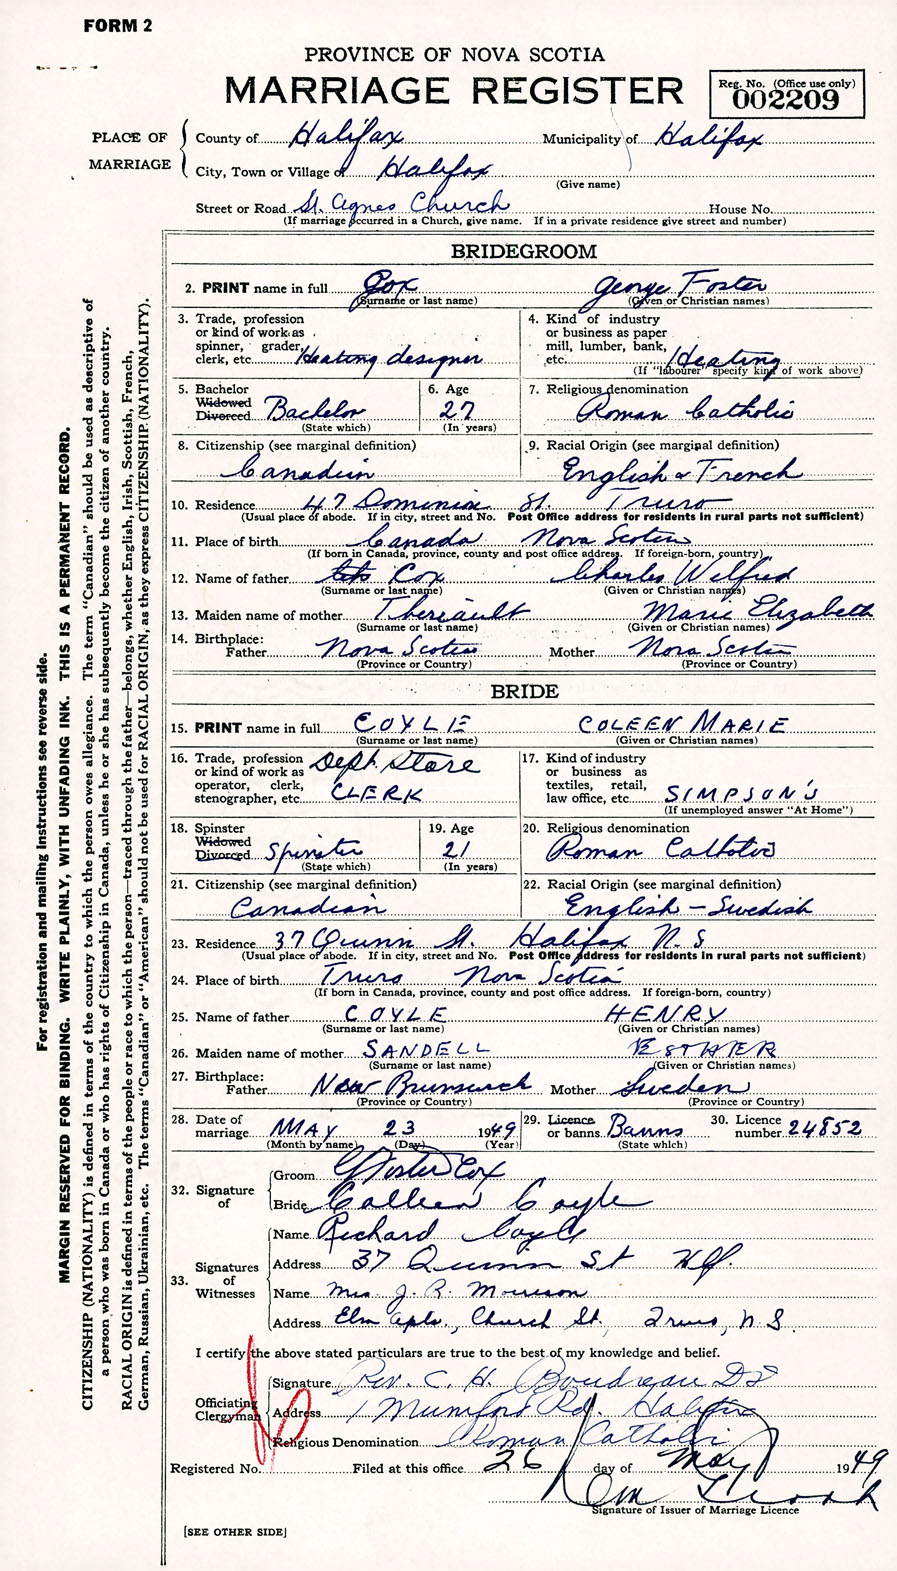 FORM 2
PROVINCE OF NOVA SCOTIA
MARRIAGE REGISTER
Reg. No. (Office use only)
002209
PLACE OF MARRIAGE
County of Halifax Municipality of Halifax
City, Town or Village of Halifax
(Give name)
Street or Road St. Agnes Church House No.
(If marriage occurred in a Church, give name. If in a private residence give street and number)
BRIDEGROOM
2. PRINT name in full Cox George Foster
(Surname or last name) (Given or Christian names)
3. Trade, profession
or kind of work as
spinner, grader,
clerk, etc. Heating designer
4. Kind of industry
or business as paper
mill, lumber, bank,
etc. Heating
(If "labourer" specify kind of work above)
5. Bachelor
Widowed
Divorced Bachelor
(State which)
6. Age
27
(In years)
7. Religious denomination
Roman Catholic
8. Citizenship (see marginal definition)
Canadian
9. Racial Origin (see marginal definition)
English & French
10. Residence 47 Dominion St. Truro
(Usual place of abode. If in city, street and No. Post Office address for residents in rural parts not sufficient)
11. Place of birth Canada Nova Scotia
(If born in Canada, province, county and post office address. If foreign-born, country)
12. Name of father Cox Charles Wilfred
(Surname or last name) (Given or Christian names)
13. Maiden name of mother Theriault Marie Elizabeth
(Surname or last name) (Given or Christian names)
14. Birthplace:
Father Nova Scotia Mother Nova Scotia
(Province or Country) (Province or Country)
BRIDE
15. PRINT name in full COYLE COLEEN MARIE
(Surname or last name) (Given or Christian names)
16. Trade, profession
or kind of work as
operator, clerk,
stenographer, etc. Dept. Store
CLERK
17. Kind of industry
or business as
textiles, retail,
law office, etc. SIMPSON'S
(If unemployed answer "At Home")
18. Spinster
Widowed
Divorced Spinster
(State which)
19. Age
21
(In years)
20. Religious denomination
Roman Catholic
21. Citizenship (see marginal definition)
Canadian
22. Racial Origin (see marginal definition)
English - Swedish
23. Residence 37 Quinn St. Halifax N.S
(Usual place of abode. If in city, street and No. Post Office address for residents in rural parts not sufficient)
24. Place of birth Truro Nova Scotia
(If born in Canada, province, county and post office address. If foreign-born, country)
25. Name of father COYLE HENRY
(Surname or last name) (Given or Christian names)
26. Maiden name of mother SANDELL ESTHER
(Surname or last name) (Given or Christian names)
27. Birthplace:
Father New Brunswick Mother Sweden
(Province or Country) (Province or Country)
28. Date of
marriage MAY 23 1949
(Month by name) (Day) (Year)
29. Licence
or banns Banns
(State which)
30. Licence
number 24852
32. Signature of
Groom G Foster Cox
Bride Colleen Coyle
33. Signatures of Witnesses
Name Richard Coyle
Address 37 Quinn St Hfx.
Name Mrs J. R. Morrison
Address Elm Apts., Church St., Truro, N.S.
I certify the above stated particulars are true to the best of my knowledge and belief.
Officiating Clergyman
Signature Rev. C. H. Boudreau
Address 1 Mumford Rd. Halifax
Religious Denomination Roman Catholic
Registered No. Filed at this office 26 day of May 1949
Signature of Issuer of Marriage Licence
[SEE OTHER SIDE]
For registration and mailing instructions see reverse side.
MARGIN RESERVED FOR BINDING. WRITE PLAINLY, WITH UNFADING INK. THIS IS A PERMANENT RECORD.
CITIZENSHIP (NATIONALITY) is defined in terms of the country to which the person owes allegiance. The term "Canadian" should be used as descriptive of
a person who was born in Canada or who has rights of Citizenship in Canada, unless he or she has subsequently become the citizen of another country.
RACIAL ORIGIN is defined in terms of the people or race to which the person—traced through the father—belongs, whether English, Irish, Scottish, French,
German, Russian, Ukrainian, etc. The terms "Canadian" or "American" should not be used for RACIAL ORIGIN, as they express CITIZENSHIP (NATIONALITY).